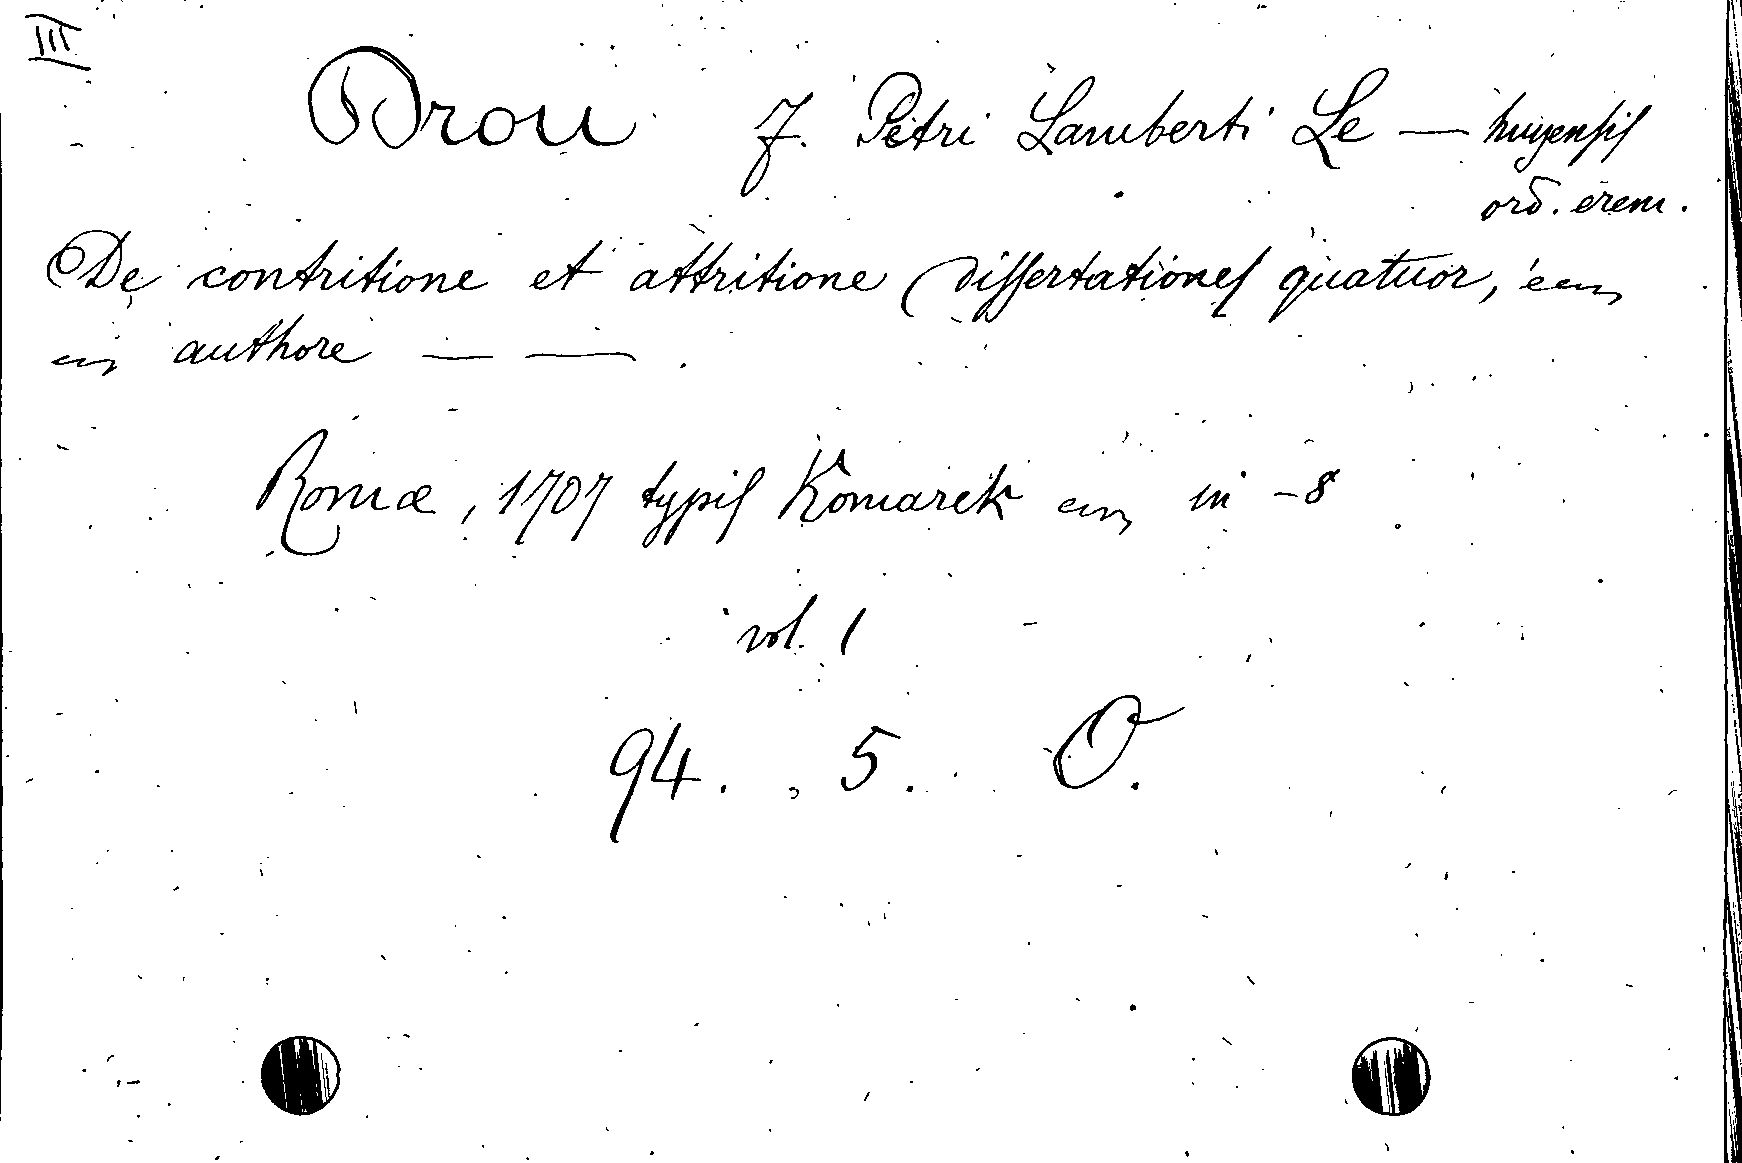 III
Drou F. Petri Lamberti Le — huyensis
ord. erem.
De contritione et attritione dissertationes quatuor,
authore — —
Romæ, 1707 typis Komarek in -8
vol. 1
94. 5. O.